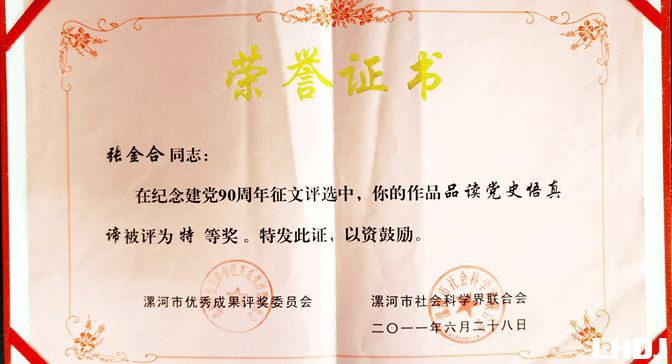 荣誉证书
张金合同志：
在纪念建党90周年征文评选中，你的作品品读党史悟真
谛被评为特等奖。特发此证，以资鼓励。
漯河市优秀成果评奖委员会
漯河市社会科学界联合会
二〇一一年六月二十八日
LHDJ